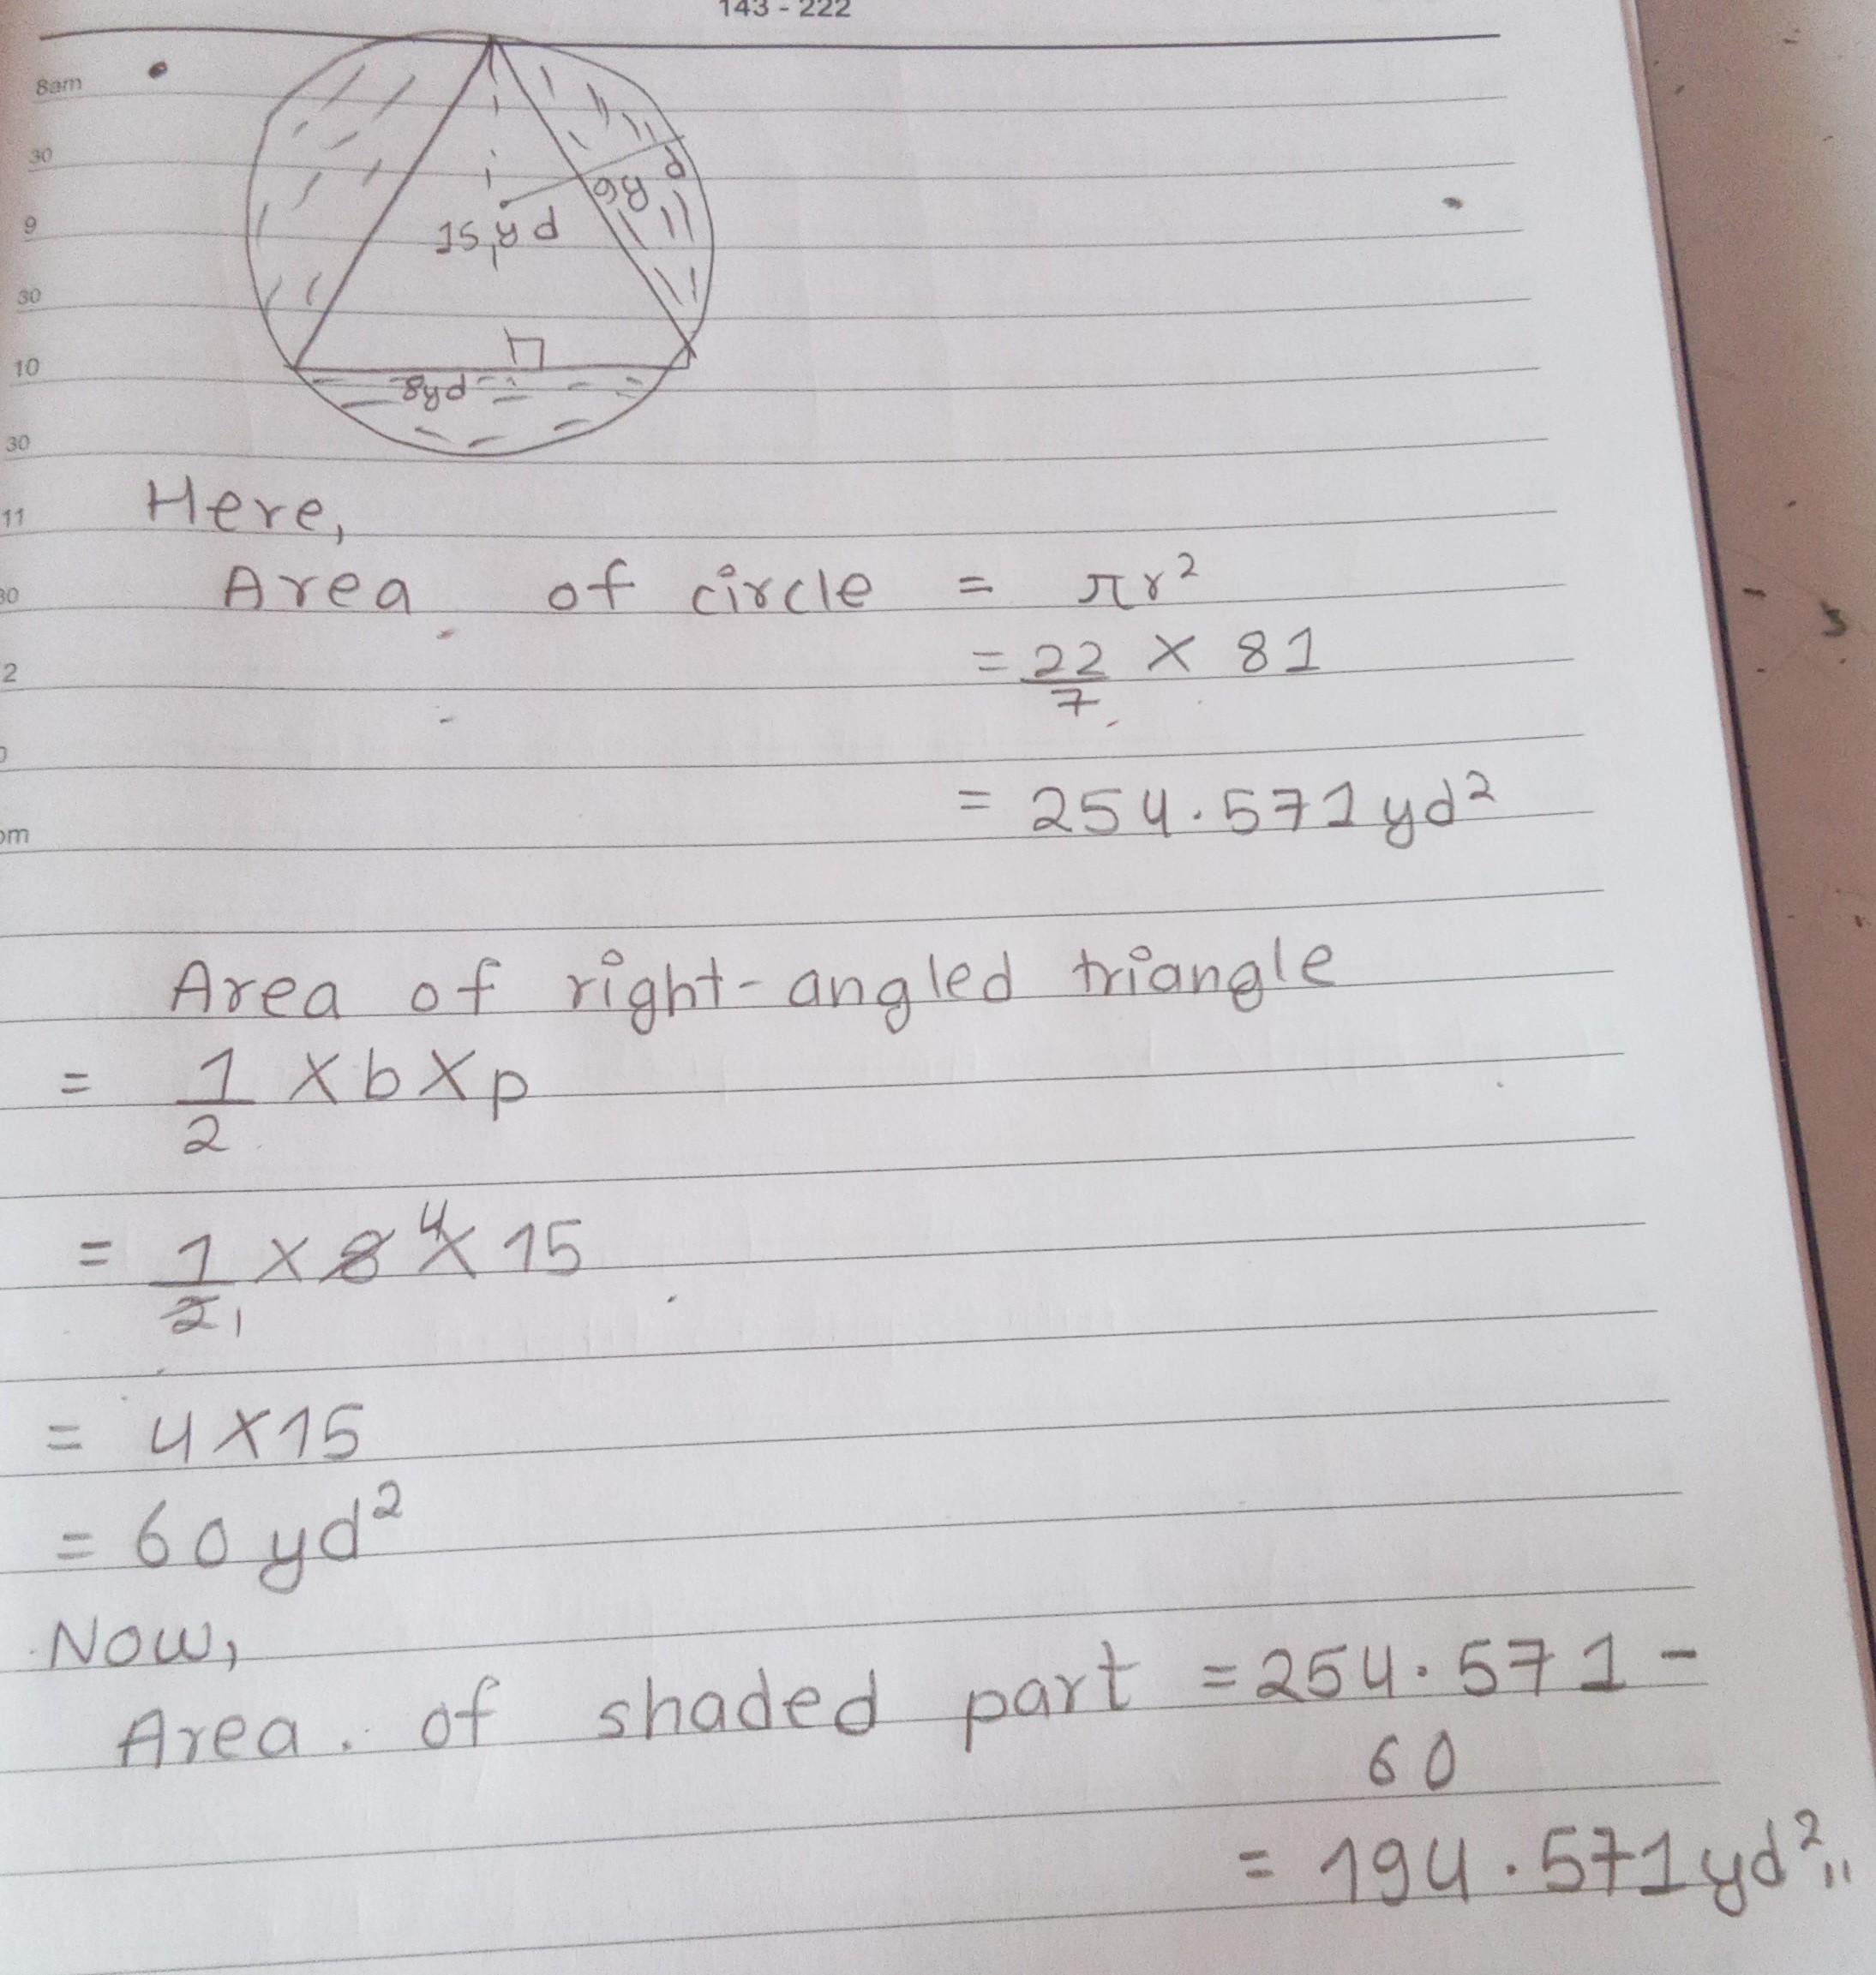 143 - 222
8am
30
9
30
10
30
11
30
2
pm
9yd
15yd
8yd
Here,
Area of circle = πr²
= 22/7 × 81
= 254.571 yd²
Area of right-angled triangle
= 1/2 × b × p
= 1/2 1 × 8 4 × 15
= 4 × 15
= 60 yd²
Now,
Area. of shaded part = 254.571 -
60
= 194.571 yd² "